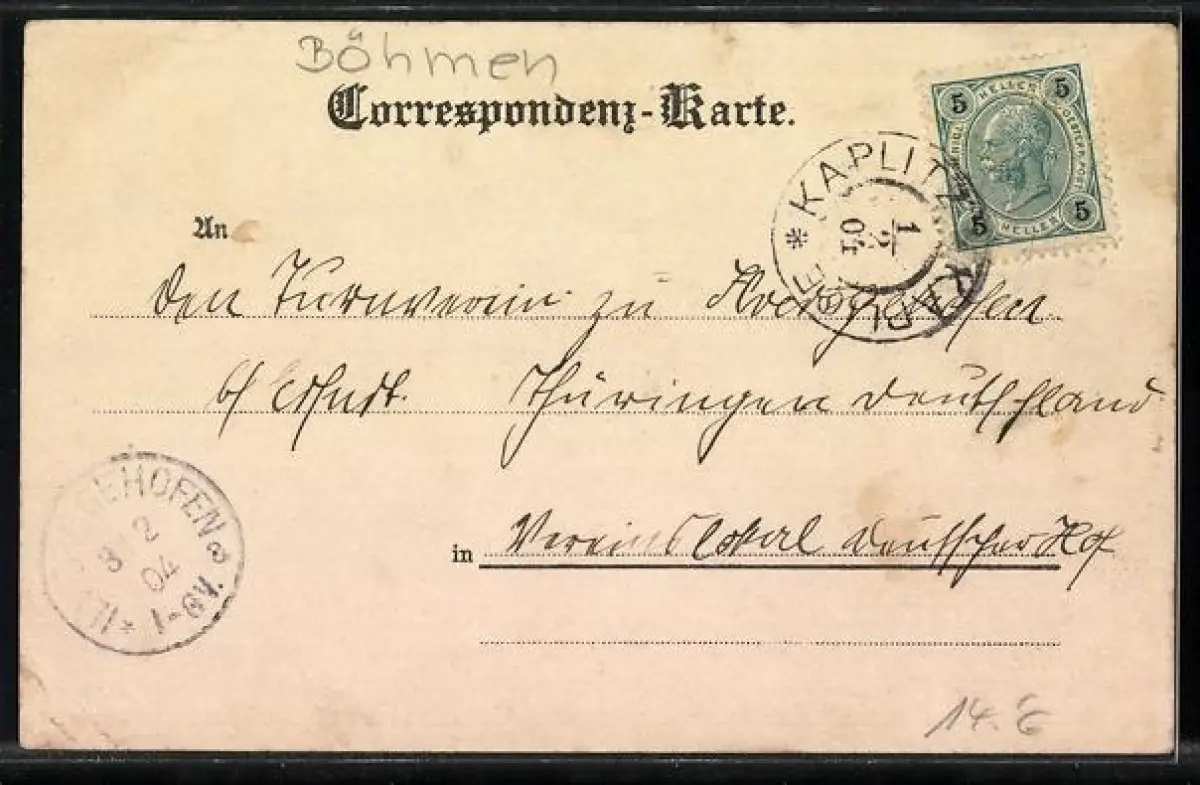 Böhmen
Correspondenz-Karte.
5 HELLER 5
5 HELLER 5
KAPLITZ
1/2
04
KAPLICE
An
den Turnverein zu
b/ Erfurt. Thüringen Deutschland
HOFEN
3 2
04
1-8V.
in Vereinslokal Deutscher Hof
14. E